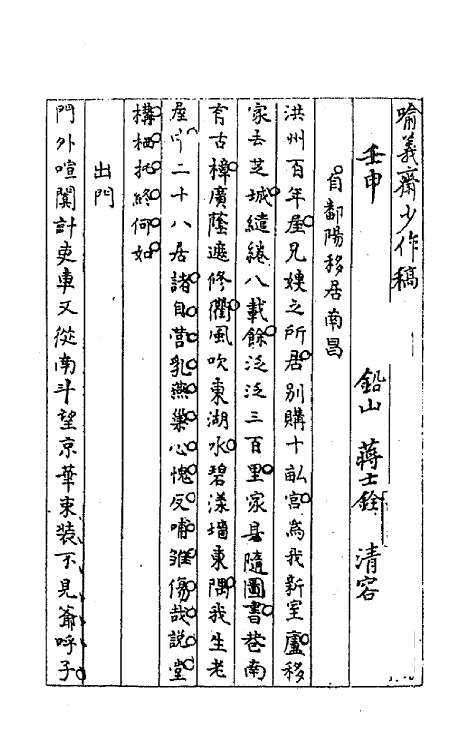 喻義齋少作稿
壬申 鉛山 蔣士銓 清容
自鄱陽移居南昌
洪州百年屋兄嫂之所居別購十畝宮為我新室廬移
家去芝城繾綣八載餘泛泛三百里家具隨圖書巷南
有古樟廣蔭遮修衢風吹東湖水碧漾墻東隅我生老
屋中二十八居諸自營乳燕巢心愧反哺雛傷哉說堂
構栖托終何如
出門
門外喧闐計吏車又從南斗望京華束裝不見爺呼子